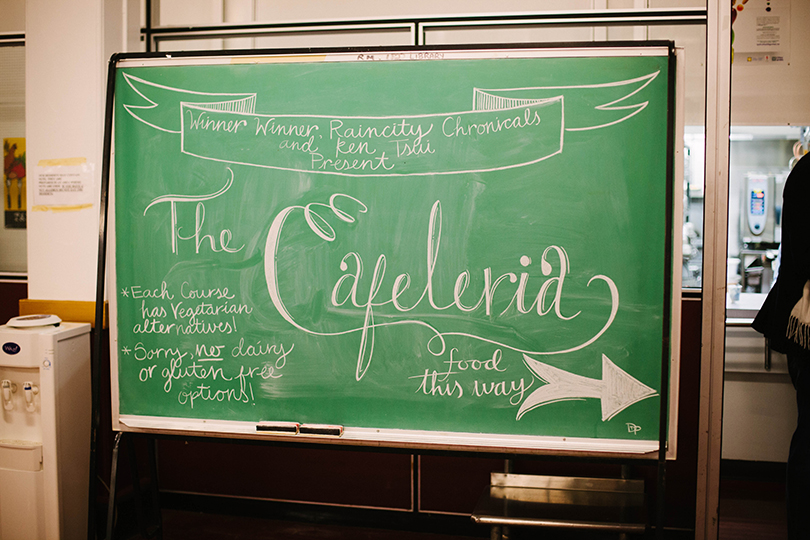 RM. LIBRARY
Winner Winner, Raincity Chronicals
and Ken Tsui
Present
The
Cafeteria
*Each Course
has Vegetarian
alternatives!
*Sorry, no dairy
or gluten free
options!
food
this way
DP